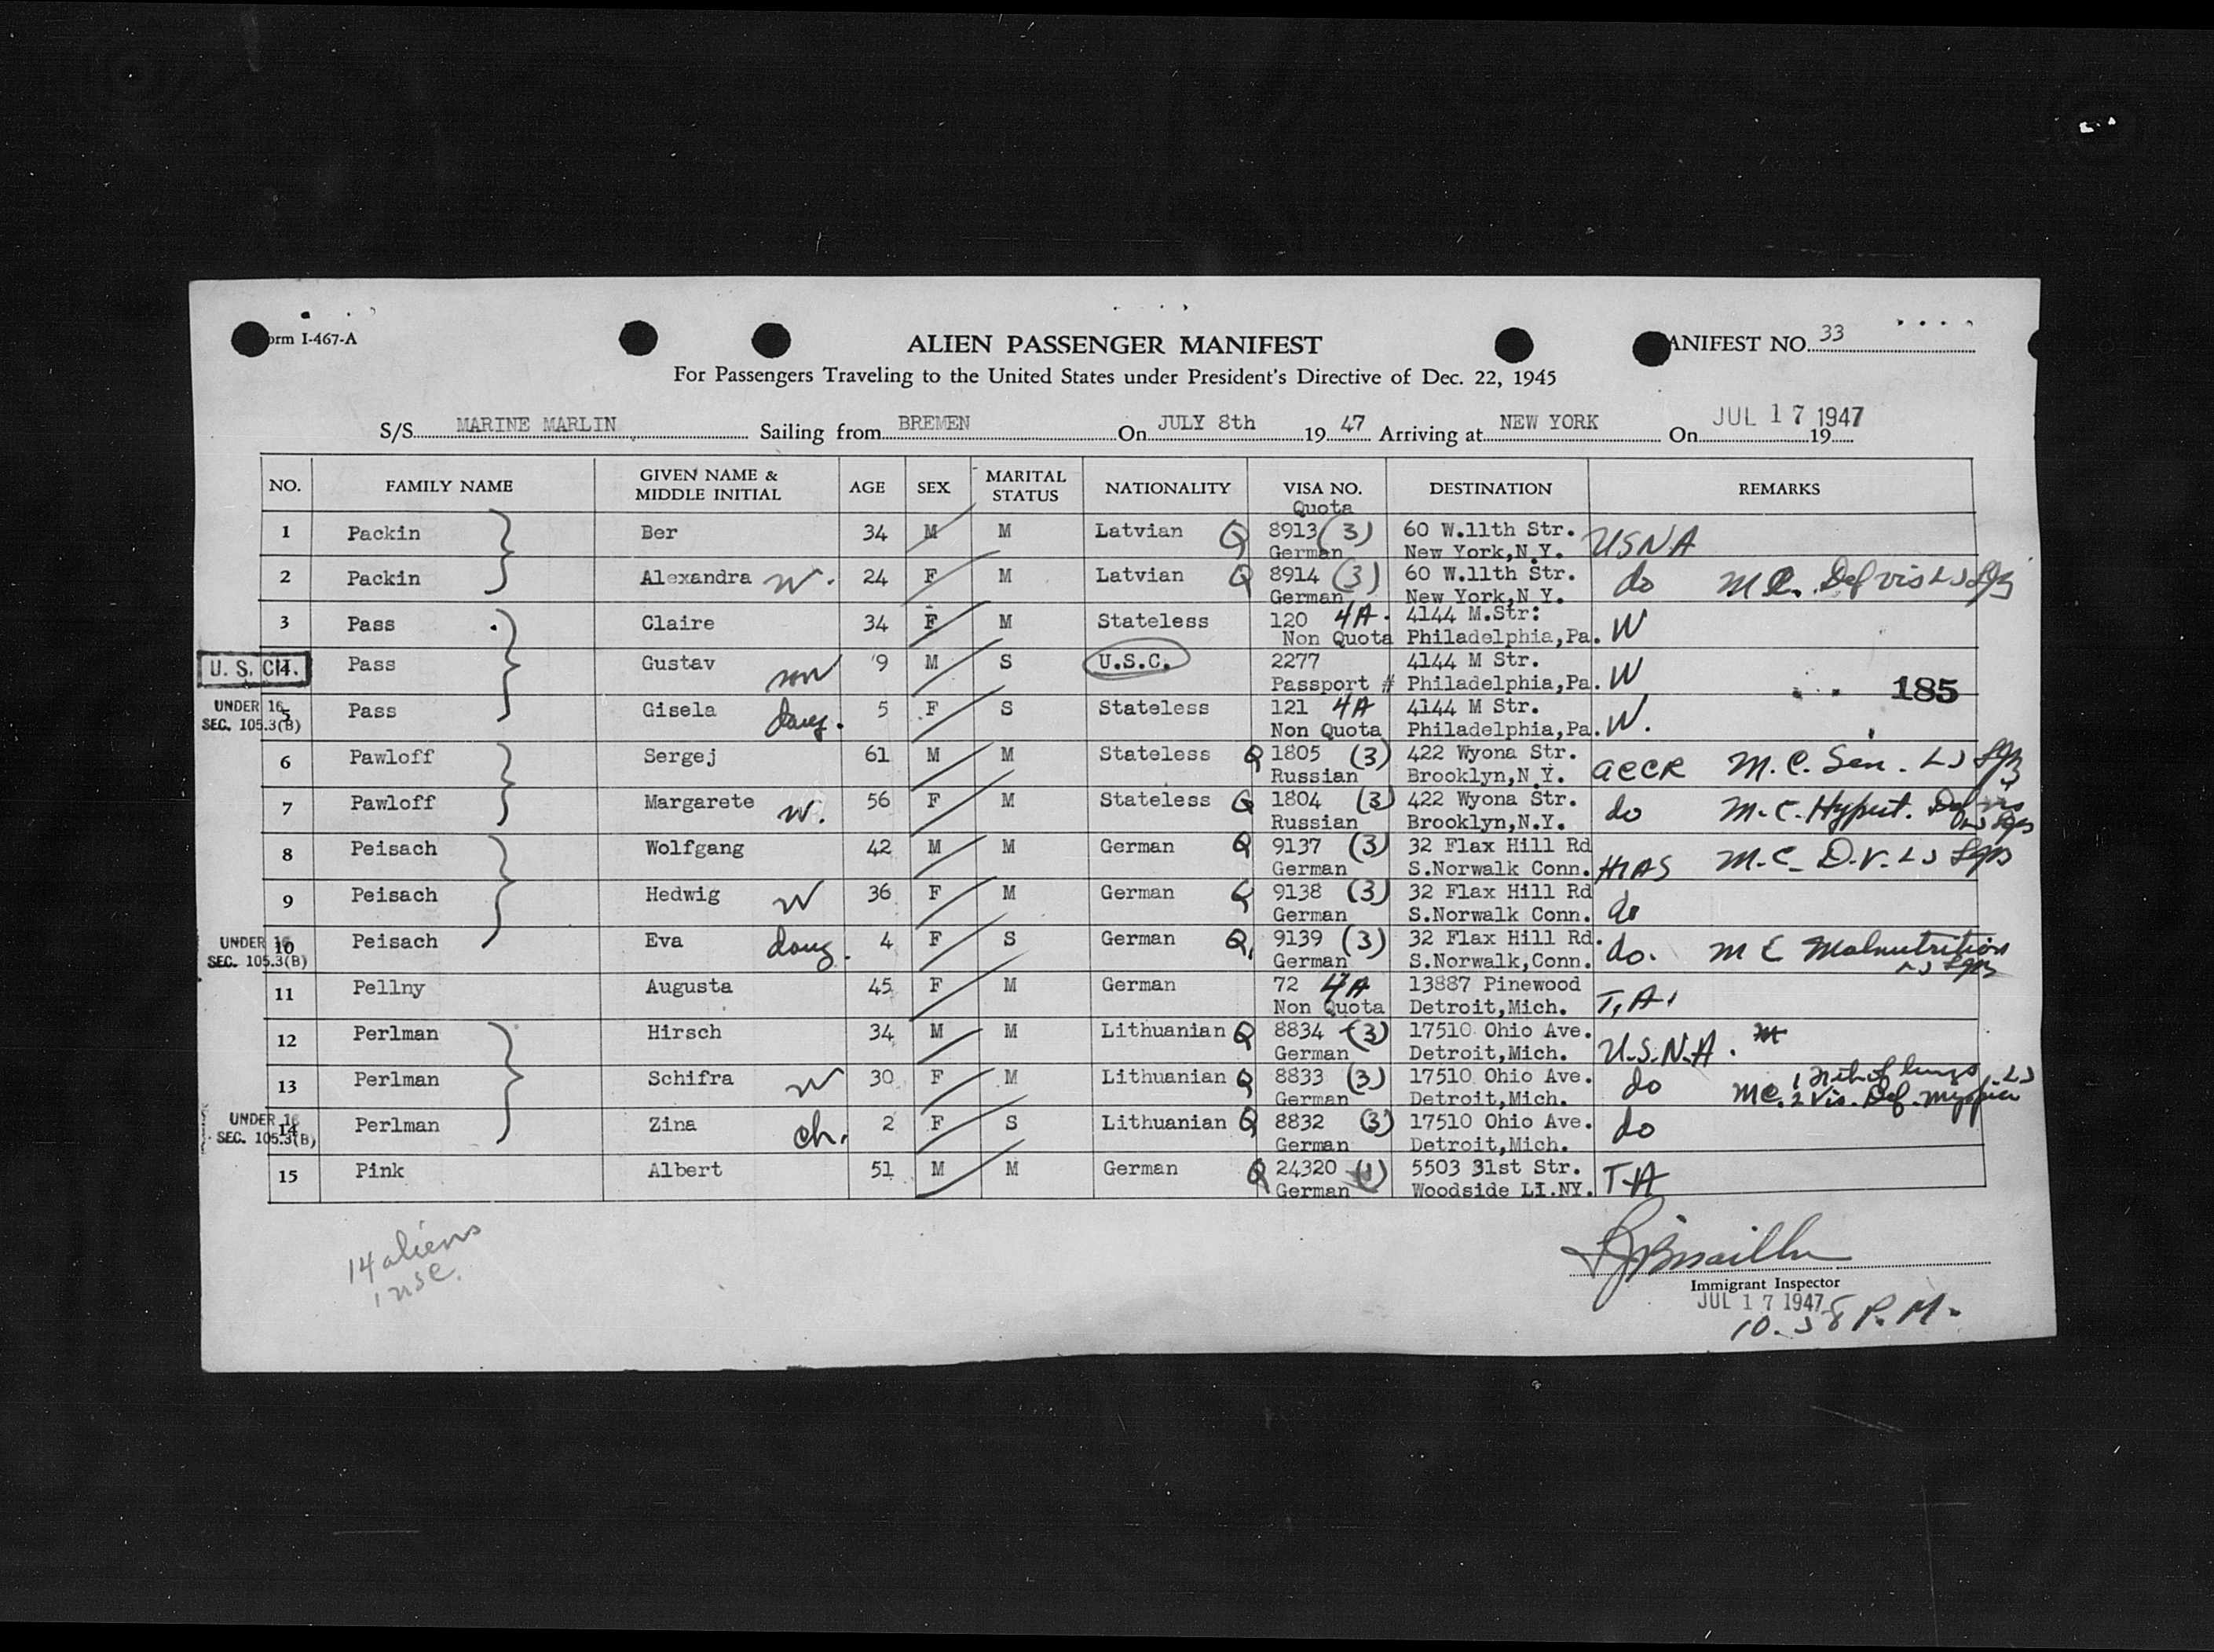 Form I-467-A
ALIEN PASSENGER MANIFEST
MANIFEST NO. 33
For Passengers Traveling to the United States under President's Directive of Dec. 22, 1945
S/S MARINE MARLIN Sailing from BREMEN On JULY 8th 19 47 Arriving at NEW YORK On JUL 17 1947 19
NO. FAMILY NAME GIVEN NAME & MIDDLE INITIAL AGE SEX MARITAL STATUS NATIONALITY VISA NO. DESTINATION REMARKS
Quota
1 Packin Ber 34 M M Latvian Q 8913 (3) 60 W.11th Str. USNA
German New York,N.Y.
2 Packin Alexandra W. 24 F M Latvian Q 8914 (3) 60 W.11th Str. do M.C. Def vis
German New York,N Y.
3 Pass Claire 34 F M Stateless 120 4A. 4144 M.Str: W
Non Quota Philadelphia,Pa.
U. S. CIT. 4 Pass Gustav son 9 M S U.S.C. 2277 4144 M Str. W
Passport # Philadelphia,Pa.
185
UNDER 16 SEC. 105.3(B) 5 Pass Gisela daug. 5 F S Stateless 121 4A 4144 M Str. W.
Non Quota Philadelphia,Pa.
6 Pawloff Sergej 61 M M Stateless Q 1805 (3) 422 Wyona Str. ACCR M.C. Sen.
Russian Brooklyn,N Y.
7 Pawloff Margarete W. 56 F M Stateless Q 1804 (3) 422 Wyona Str. do M.C. Hypert. Def vis
Russian Brooklyn,N.Y.
8 Peisach Wolfgang 42 M M German Q 9137 (3) 32 Flax Hill Rd HIAS M.C. D.V.
German S.Norwalk Conn.
9 Peisach Hedwig W 36 F M German Q 9138 (3) 32 Flax Hill Rd do
German S.Norwalk Conn.
UNDER 16 SEC. 105.3(B) 10 Peisach Eva daug. 4 F S German Q. 9139 (3) 32 Flax Hill Rd. do. M C Malnutrition
German S.Norwalk,Conn.
11 Pellny Augusta 45 F M German 72 4A 13887 Pinewood T.A.
Non Quota Detroit,Mich.
12 Perlman Hirsch 34 M M Lithuanian Q 8834 (3) 17510 Ohio Ave. U.S.N.A.
German Detroit,Mich.
13 Perlman Schifra W 30 F M Lithuanian Q 8833 (3) 17510 Ohio Ave. do MC. 2 Vis. Def. Myopia
German Detroit,Mich.
UNDER 16 SEC. 105.3(B) 14 Perlman Zina ch. 2 F S Lithuanian Q 8832 (3) 17510 Ohio Ave. do
German Detroit,Mich.
15 Pink Albert 51 M M German Q 24320 (1) 5503 31st Str. T-A
German Woodside LI.NY.
14 aliens
1 USC.
Immigrant Inspector
JUL 17 1947
10.58 P.M.